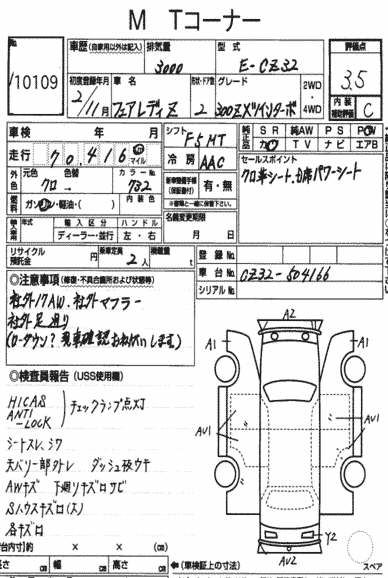 M Tコーナー
No.
10109
車歴(自家用以外は記入)
排気量
3000
型式
E-CZ32
評価点
3.5
初度登録年月
2/11月
車名
フェアレディZ
ドア数
2
グレード
300ZX ツインターボ
2WD
4WD
内装
補助評価
C
車検 年 月
走行 70,416 マイル
シフト
F5MT
冷房
AAC
純正品
SR 純AW PS PW
カワ TV ナビ エアB
外色
元色
クロ →
色替
カラーNo.
732
内装色
燃料
ガソリン・軽油・( )
有・無
セールスポイント
クロ革シート、助席パワーシート
名義変更期限
月 日
輸入車
年式
輸入区分
ハンドル
ディーラー・並行
左・右
リサイクル預託金
円
乗車定員
2人
積載量
t
登録No.
車台No.
CZ32-504166
シリアルNo.
◎注意事項(修復・不具合箇所および状態等)
社外17AW. 社外マフラー
社外足廻り
(ローダウン? 現車確認お願いします)
◎検査員報告(USS使用欄)
HICAS
ANTI-LOCK
チェックランプ点灯
シートスレ、シワ
天バリ一部タレ ダッシュ板ウキ
AWキズ 下廻りキズ サビ
Sハウスキズ
各キズ
A2
A1
A1
AU1
AU1
Y2
AU2
スペア
台内寸)約 × × (cm)
長さ cm 幅 cm 高さ cm
←(車検証上の寸法)